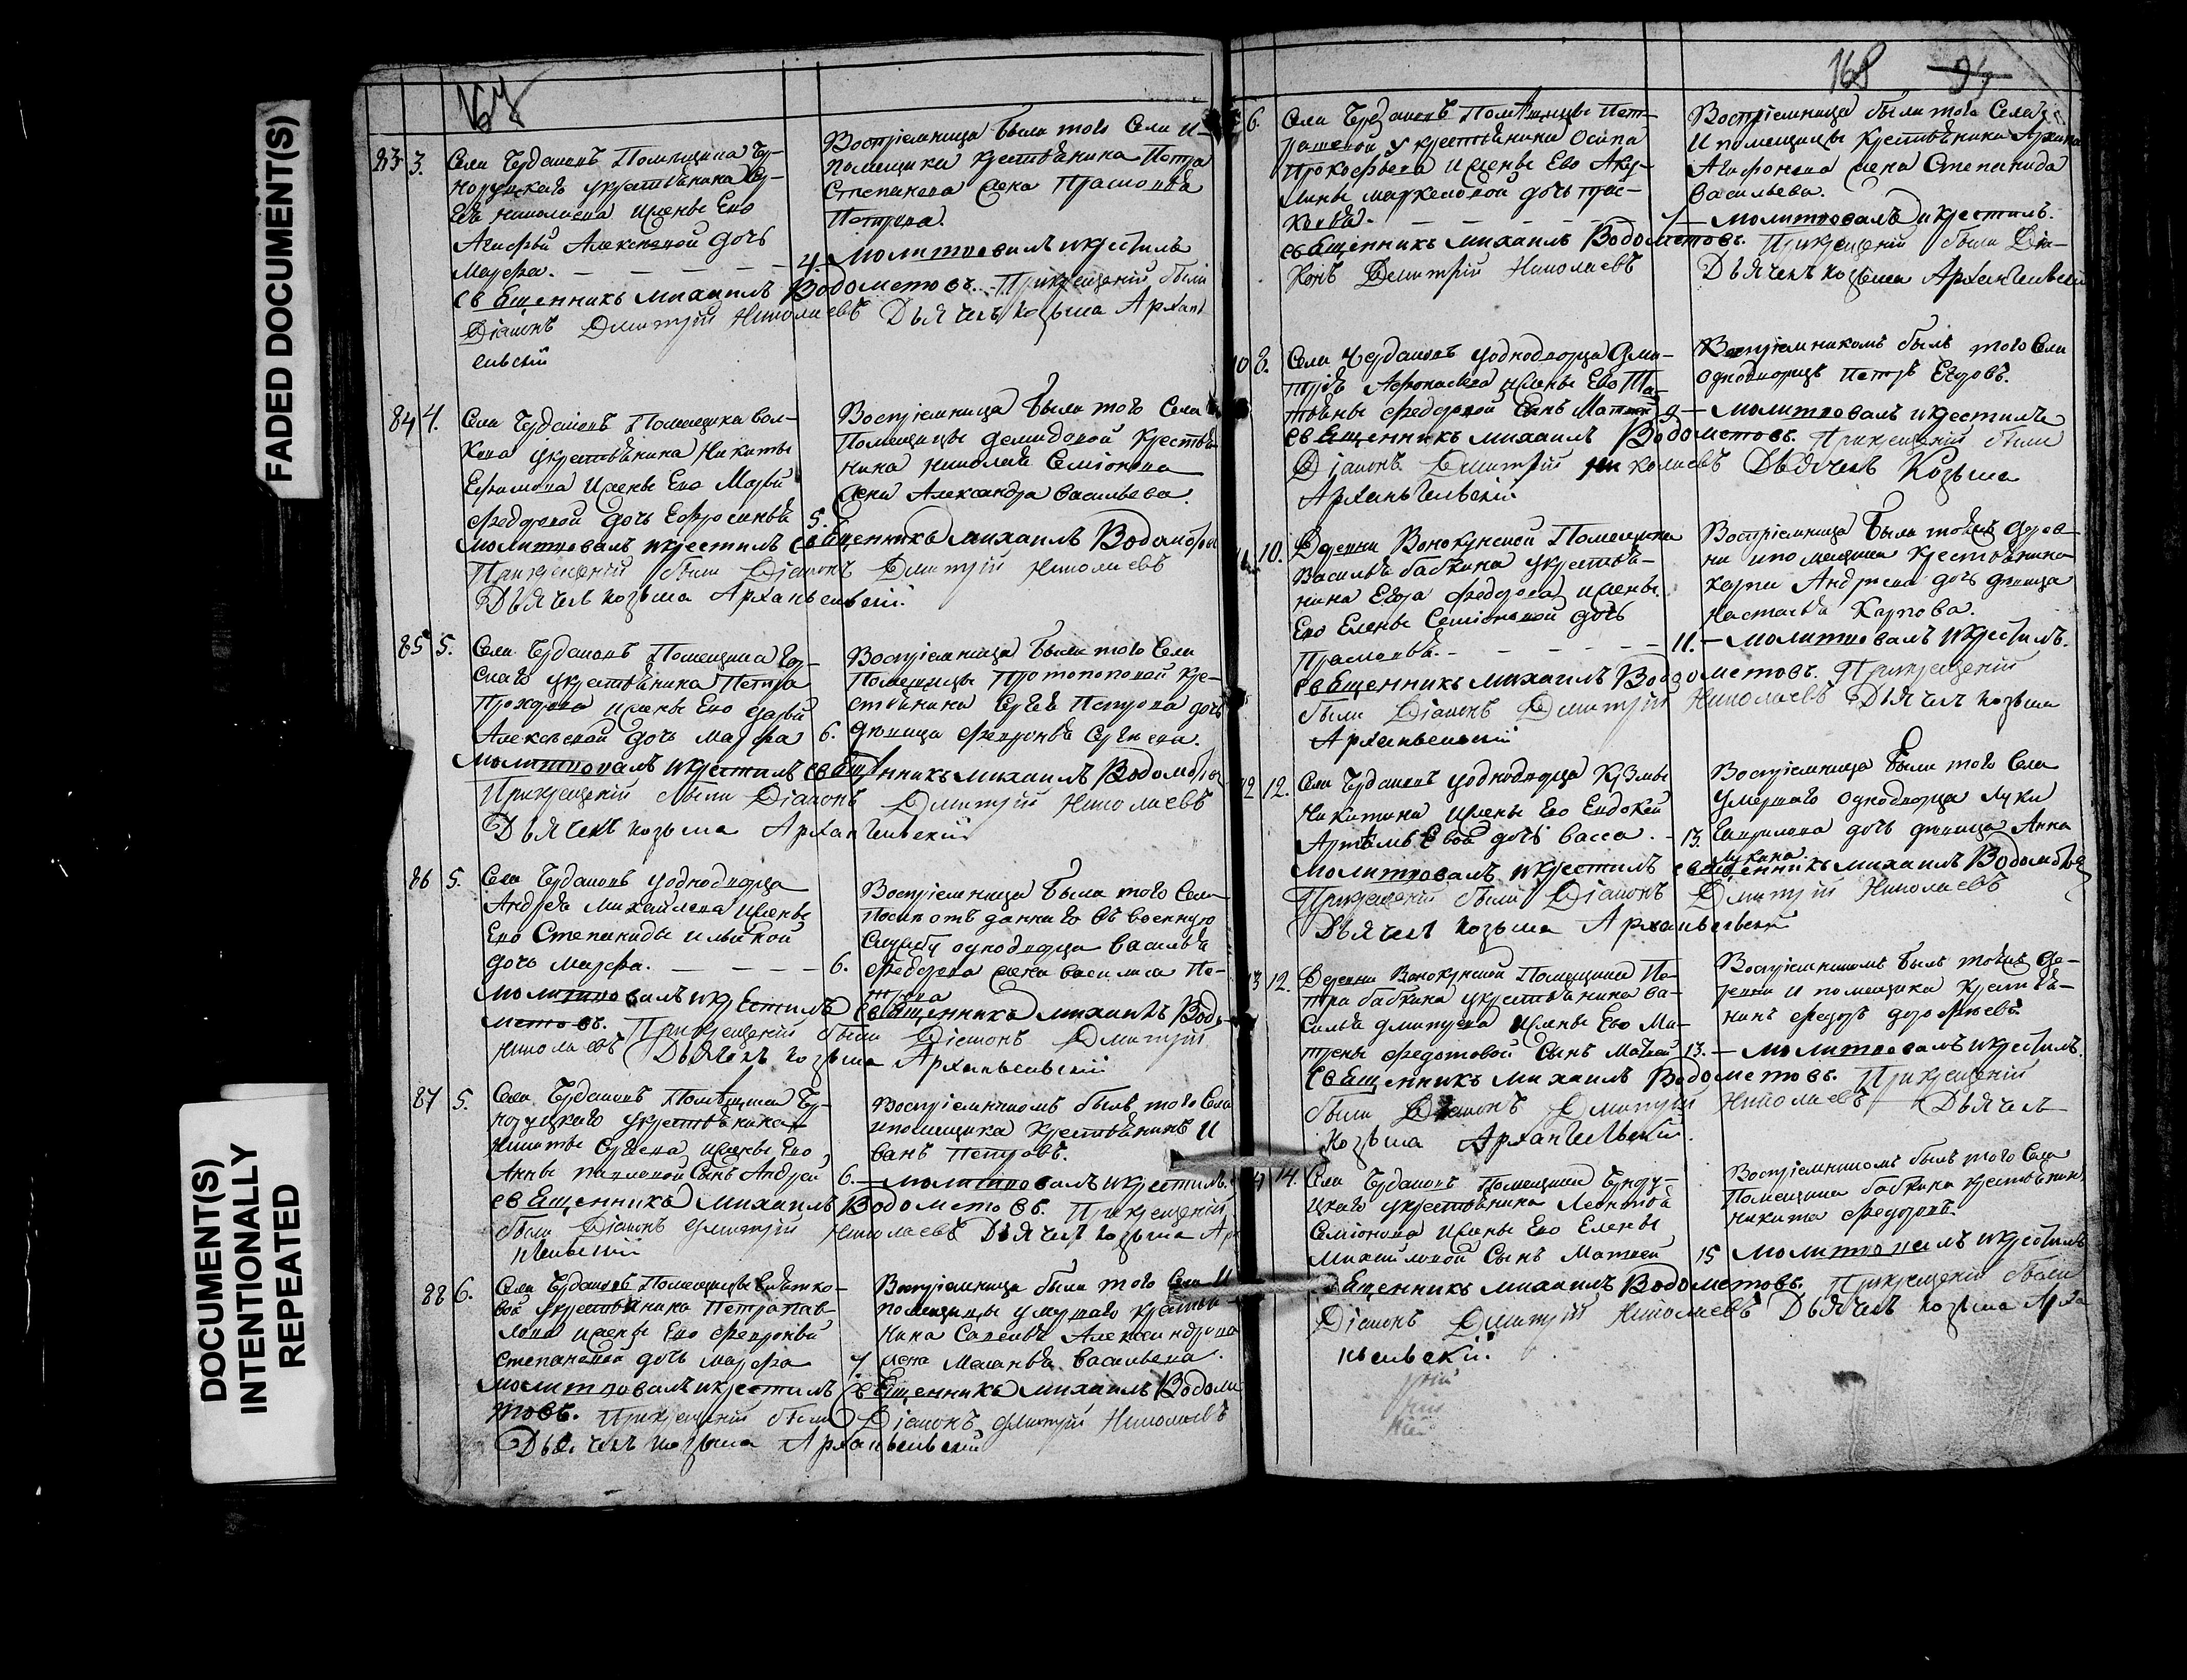 FADED DOCUMENT(S)
DOCUMENT(S)
INTENTIONALLY
REPEATED
167
83 3. Села Бурдановъ Помещика
крестьянина
Николаева и жены Его
Агафьи Алексеевой дочь
Марфа.
Восприемница была того Села и
помещика крестьянина Петра
Степанова жена Прасковья
Петрова.
4. Молитвовалъ и крестилъ
священникъ Михаилъ Водометовъ. При крещеніи были
Діаконъ Дмитрій Николаевъ Дьячекъ Козьма Архан
гельскій
84 4. Села Помещика Вол-
кова у крестьянина Никиты
Ефимова и жены Его Марьи
Федоровой дочь Ефросинья
Восприемница была того Села
Помещицы Демидовой крестья-
нина Николая Семіонова
жена Александра Васильева.
5.
Молитвовалъ и крестилъ священникъ Михаилъ Водометовъ
При крещеніи были Діаконъ Дмитрій Николаевъ
Дьячекъ Козьма Архангельскій.
85 5. Села Помещика
у крестьянина Петра
Прохорова и жены Его Дарьи
Алексеевой дочь Марфа
Восприемница была того Села
Помещицы Протопоповой кре-
стьянина Сергея Петрова дочь
6. девица Февронья Сергеева.
Молитвовалъ и крестилъ священникъ Михаилъ Водометовъ
При крещеніи были Діаконъ Дмитрій Николаевъ
Дьячекъ Козьма Архангельскій
86 5. Села у однодворца
Андрея Михайлова и жены
Его Степаниды Ильиной
дочь Марфа.
Восприемница была того Села
отданнаго въ военную
Службу однодворца Василья
6. Федорова жена Василиса Пе-
трова
Молитвовалъ и крестилъ священникъ Михаилъ Водо-
метовъ. При крещеніи были Діаконъ Дмитрій
Николаевъ Дьячекъ Козьма Архангельскій
87 5. Села Помещика
у крестьянина
Никиты Сергеева и жены Его
Анны Павловой Сынъ Андрей
Восприемникомъ былъ того Села
и помещика крестьянинъ И
ванъ Петровъ.
6. Молитвовалъ и крестилъ
священникъ Михаилъ Водометовъ. При крещеніи
были Діаконъ Дмитрій Николаевъ Дьячекъ Козьма Ар
88 6. Села Помещицы
у крестьянина Петра Пав-
лова и жены Его Февроньи
Степановой дочь Марфа
Восприемница была того Села и
помещицы умершаго крестья-
нина Савелья Александрова
7 жена Меланья Васильева.
Молитвовалъ и крестилъ священникъ Михаилъ Водоме
товъ. При крещеніи были Діаконъ Дмитрій Николаевъ
Дьячекъ Козьма Архангельскій
168 94
6. Села Помещицы
у крестьянина Осипа
Прокофьева и жены Его Аку-
лины Маркеловой дочь Прас-
ковья.
Восприемница была того Села
и помещицы крестьянина
Агафонова жена Степанида
Васильева.
7 Молитвовалъ и крестилъ
священникъ Михаилъ Водометовъ. При крещеніи были Діа-
конъ Дмитрій Николаевъ Дьячекъ Козьма Архангельскій
8. Села у однодворца Дми-
трія Афонасьева и жены Его Та-
тьяны Федоровой Сынъ Матвей
Восприемникомъ былъ того Села
однодворецъ Петръ Егоровъ.
9 Молитвовалъ и крестилъ
священникъ Михаилъ Водометовъ. При крещеніи были
Діаконъ Дмитрій Николаевъ Дьячекъ Козьма
Архангельскій
10. Деревни Помещика
Василья Бабкина у крестья-
нина Егора Федорова и жены
Его Елены Семіоновой дочь
Прасковья.
Восприемница была тойже дерев-
ни и помещика крестьянина
Карпа Андреева дочь девица
Настасья Карпова.
11. Молитвовалъ и крестилъ
священникъ Михаилъ Водометовъ. При крещеніи
были Діаконъ Дмитрій Николаевъ Дьячекъ Козьма
Архангельскій
12. Села у однодворца Кузмы
Никитина и жены Его Евдокеи
Артемьевой дочь Васса.
Восприемница была того Села
Умершаго Однодворца Луки
13. Гаврилова дочь девица Анна
Лукина.
Молитвовалъ и крестилъ священникъ Михаилъ Водометовъ
При крещеніи были Діаконъ Дмитрій Николаевъ
Дьячекъ Козьма Архангельскій
12. Деревни Помещика Пе-
тра Бабкина у крестьянина Ва-
силья Дмитриева и жены Его Ма-
трены Федотовой Сынъ Матвей
Восприемникомъ былъ тойже де-
ревни и помещика крестья-
нинъ Федоръ Дорофеевъ
13. Молитвовалъ и крестилъ
священникъ Михаилъ Водометовъ. При крещеніи
были Діаконъ Дмитрій Николаевъ Дьячекъ
Козьма Архангельскій.
14. Села Помещика
у крестьянина Леонтья
Семіонова и жены Его Елены
Михайловой Сынъ Матвей
Восприемникомъ былъ того Села
Помещика Бабкина крестьянинъ
Никита Федоровъ.
15 Молитвовалъ и крестилъ
священникъ Михаилъ Водометовъ. При крещеніи были
Діаконъ Дмитрій Николаевъ Дьячекъ Козьма Арха
нгельскій.